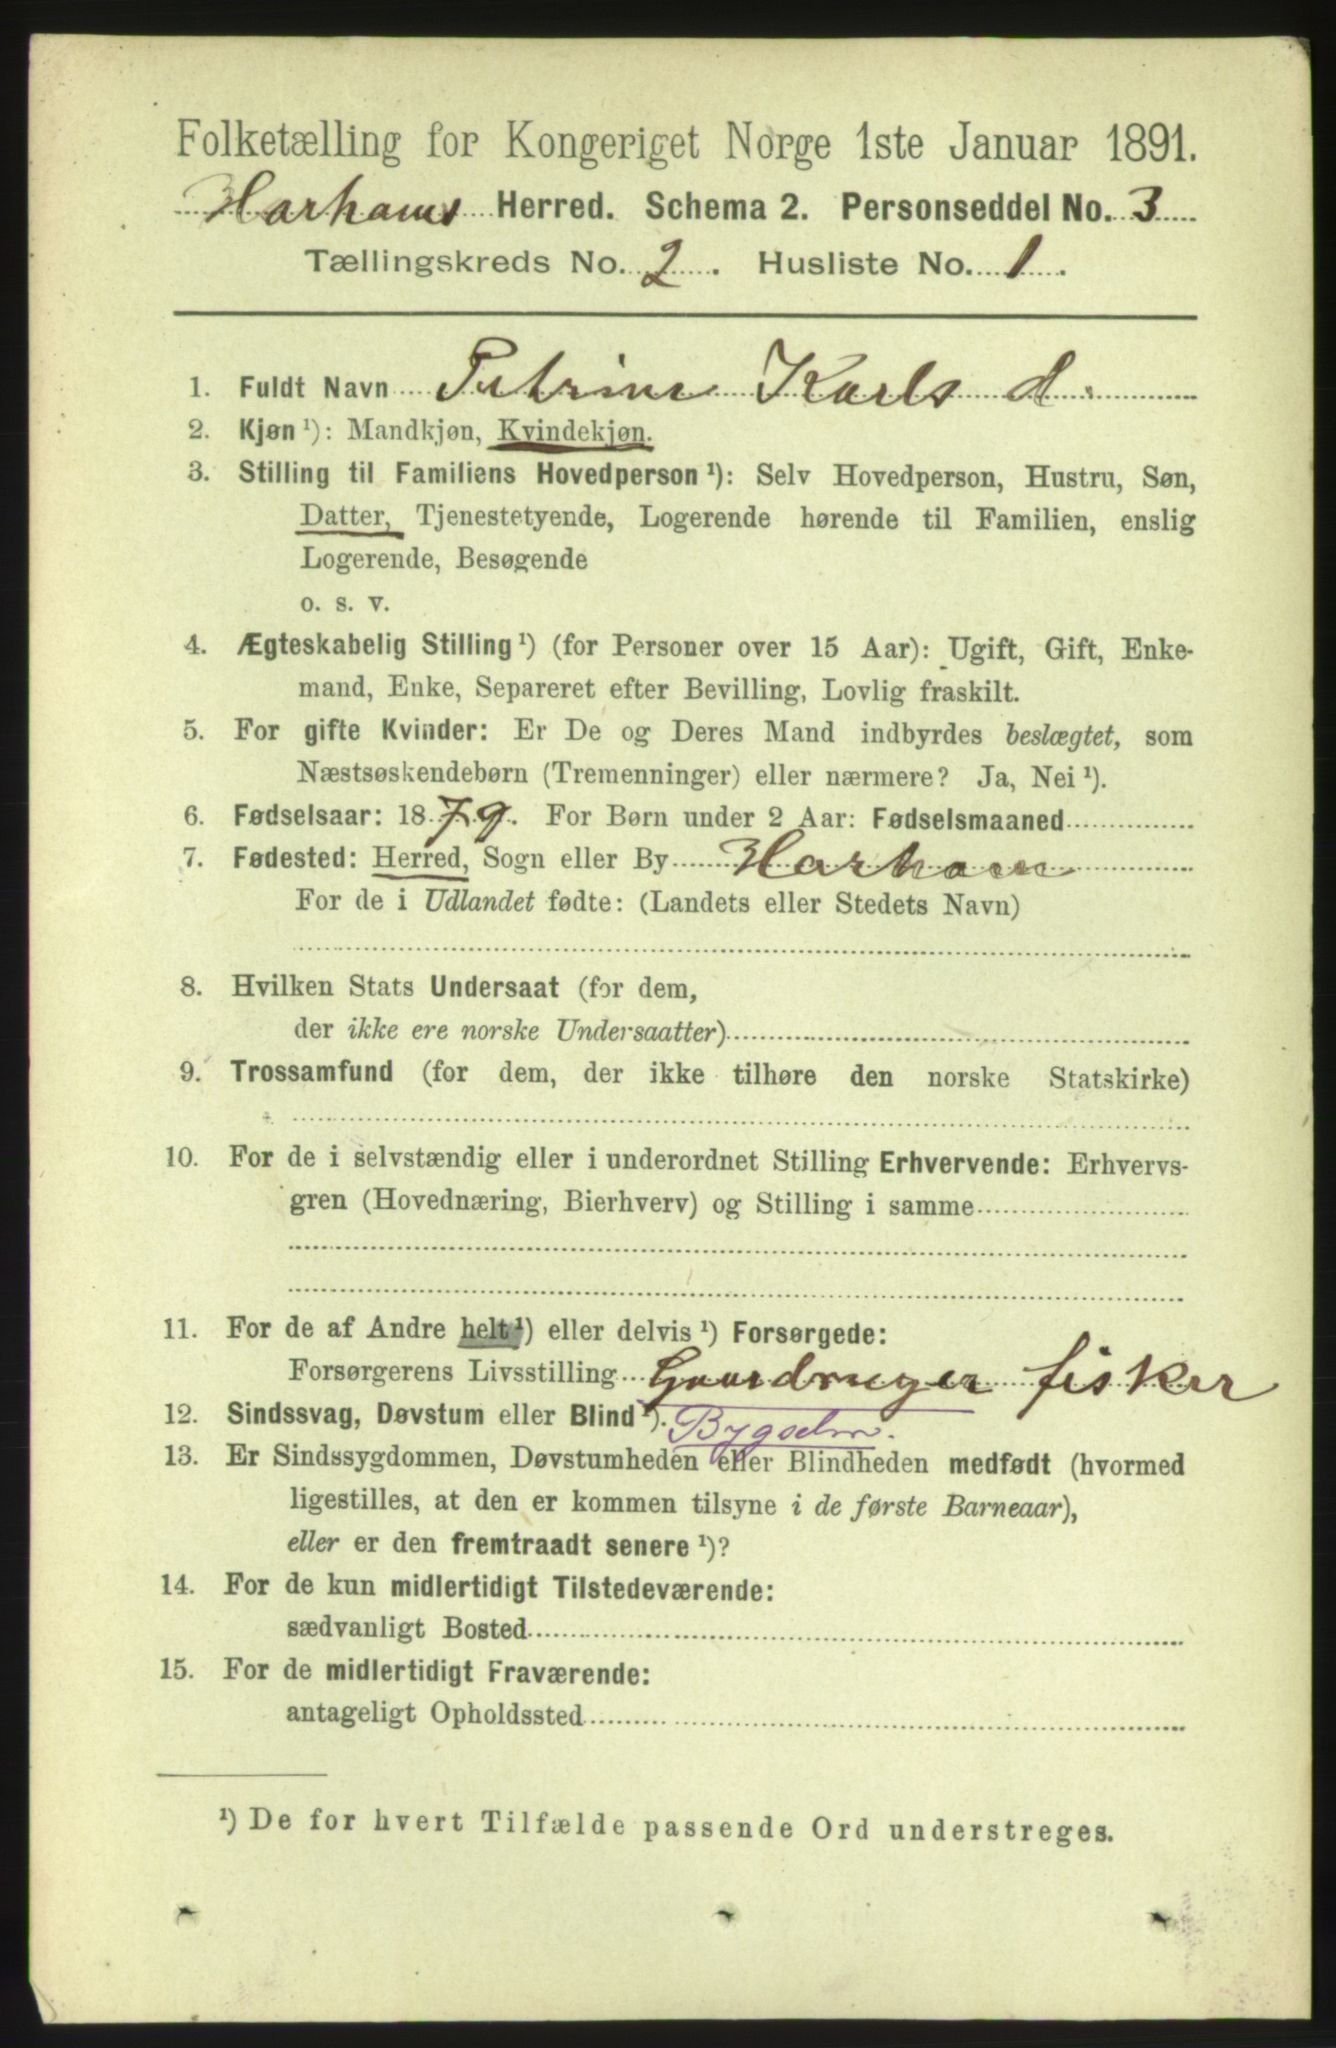 Folketælling for Kongeriget Norge 1ste Januar 1891.
Harhams Herred. Schema 2. Personseddel No. 3
Tællingskreds No. 2. Husliste No. 1.
1. Fuldt Navn Petrine Karls d.
2. Kjøn ¹): Mandkjøn, Kvindekjøn.
3. Stilling til Familiens Hovedperson ¹): Selv Hovedperson, Hustru, Søn,
Datter, Tjenestetyende, Logerende hørende til Familien, enslig
Logerende, Besøgende
o. s. v.
4. Ægteskabelig Stilling ¹) (for Personer over 15 Aar): Ugift, Gift, Enke-
mand, Enke, Separeret efter Bevilling, Lovlig fraskilt.
5. For gifte Kvinder: Er De og Deres Mand indbyrdes beslægtet, som
Næstsøskendebørn (Tremenninger) eller nærmere? Ja, Nei ¹).
6. Fødselsaar: 1879. For Børn under 2 Aar: Fødselsmaaned
7. Fødested: Herred, Sogn eller By Harham
For de i Udlandet fødte: (Landets eller Stedets Navn)
8. Hvilken Stats Undersaat (for dem,
der ikke ere norske Undersaatter)
9. Trossamfund (for dem, der ikke tilhøre den norske Statskirke)
10. For de i selvstændig eller i underordnet Stilling Erhvervende: Erhvervs-
gren (Hovednæring, Bierhverv) og Stilling i samme
11. For de af Andre helt ¹) eller delvis ¹) Forsørgede:
Forsørgerens Livsstilling Gaardbruger fisker
12. Sindssvag, Døvstum eller Blind ¹). Bygselm.
13. Er Sindssygdommen, Døvstumheden eller Blindheden medfødt (hvormed
ligestilles, at den er kommen tilsyne i de første Barneaar),
eller er den fremtraadt senere ¹)?
14. For de kun midlertidigt Tilstedeværende:
sædvanligt Bosted
15. For de midlertidigt Fraværende:
antageligt Opholdssted
¹) De for hvert Tilfælde passende Ord understreges.